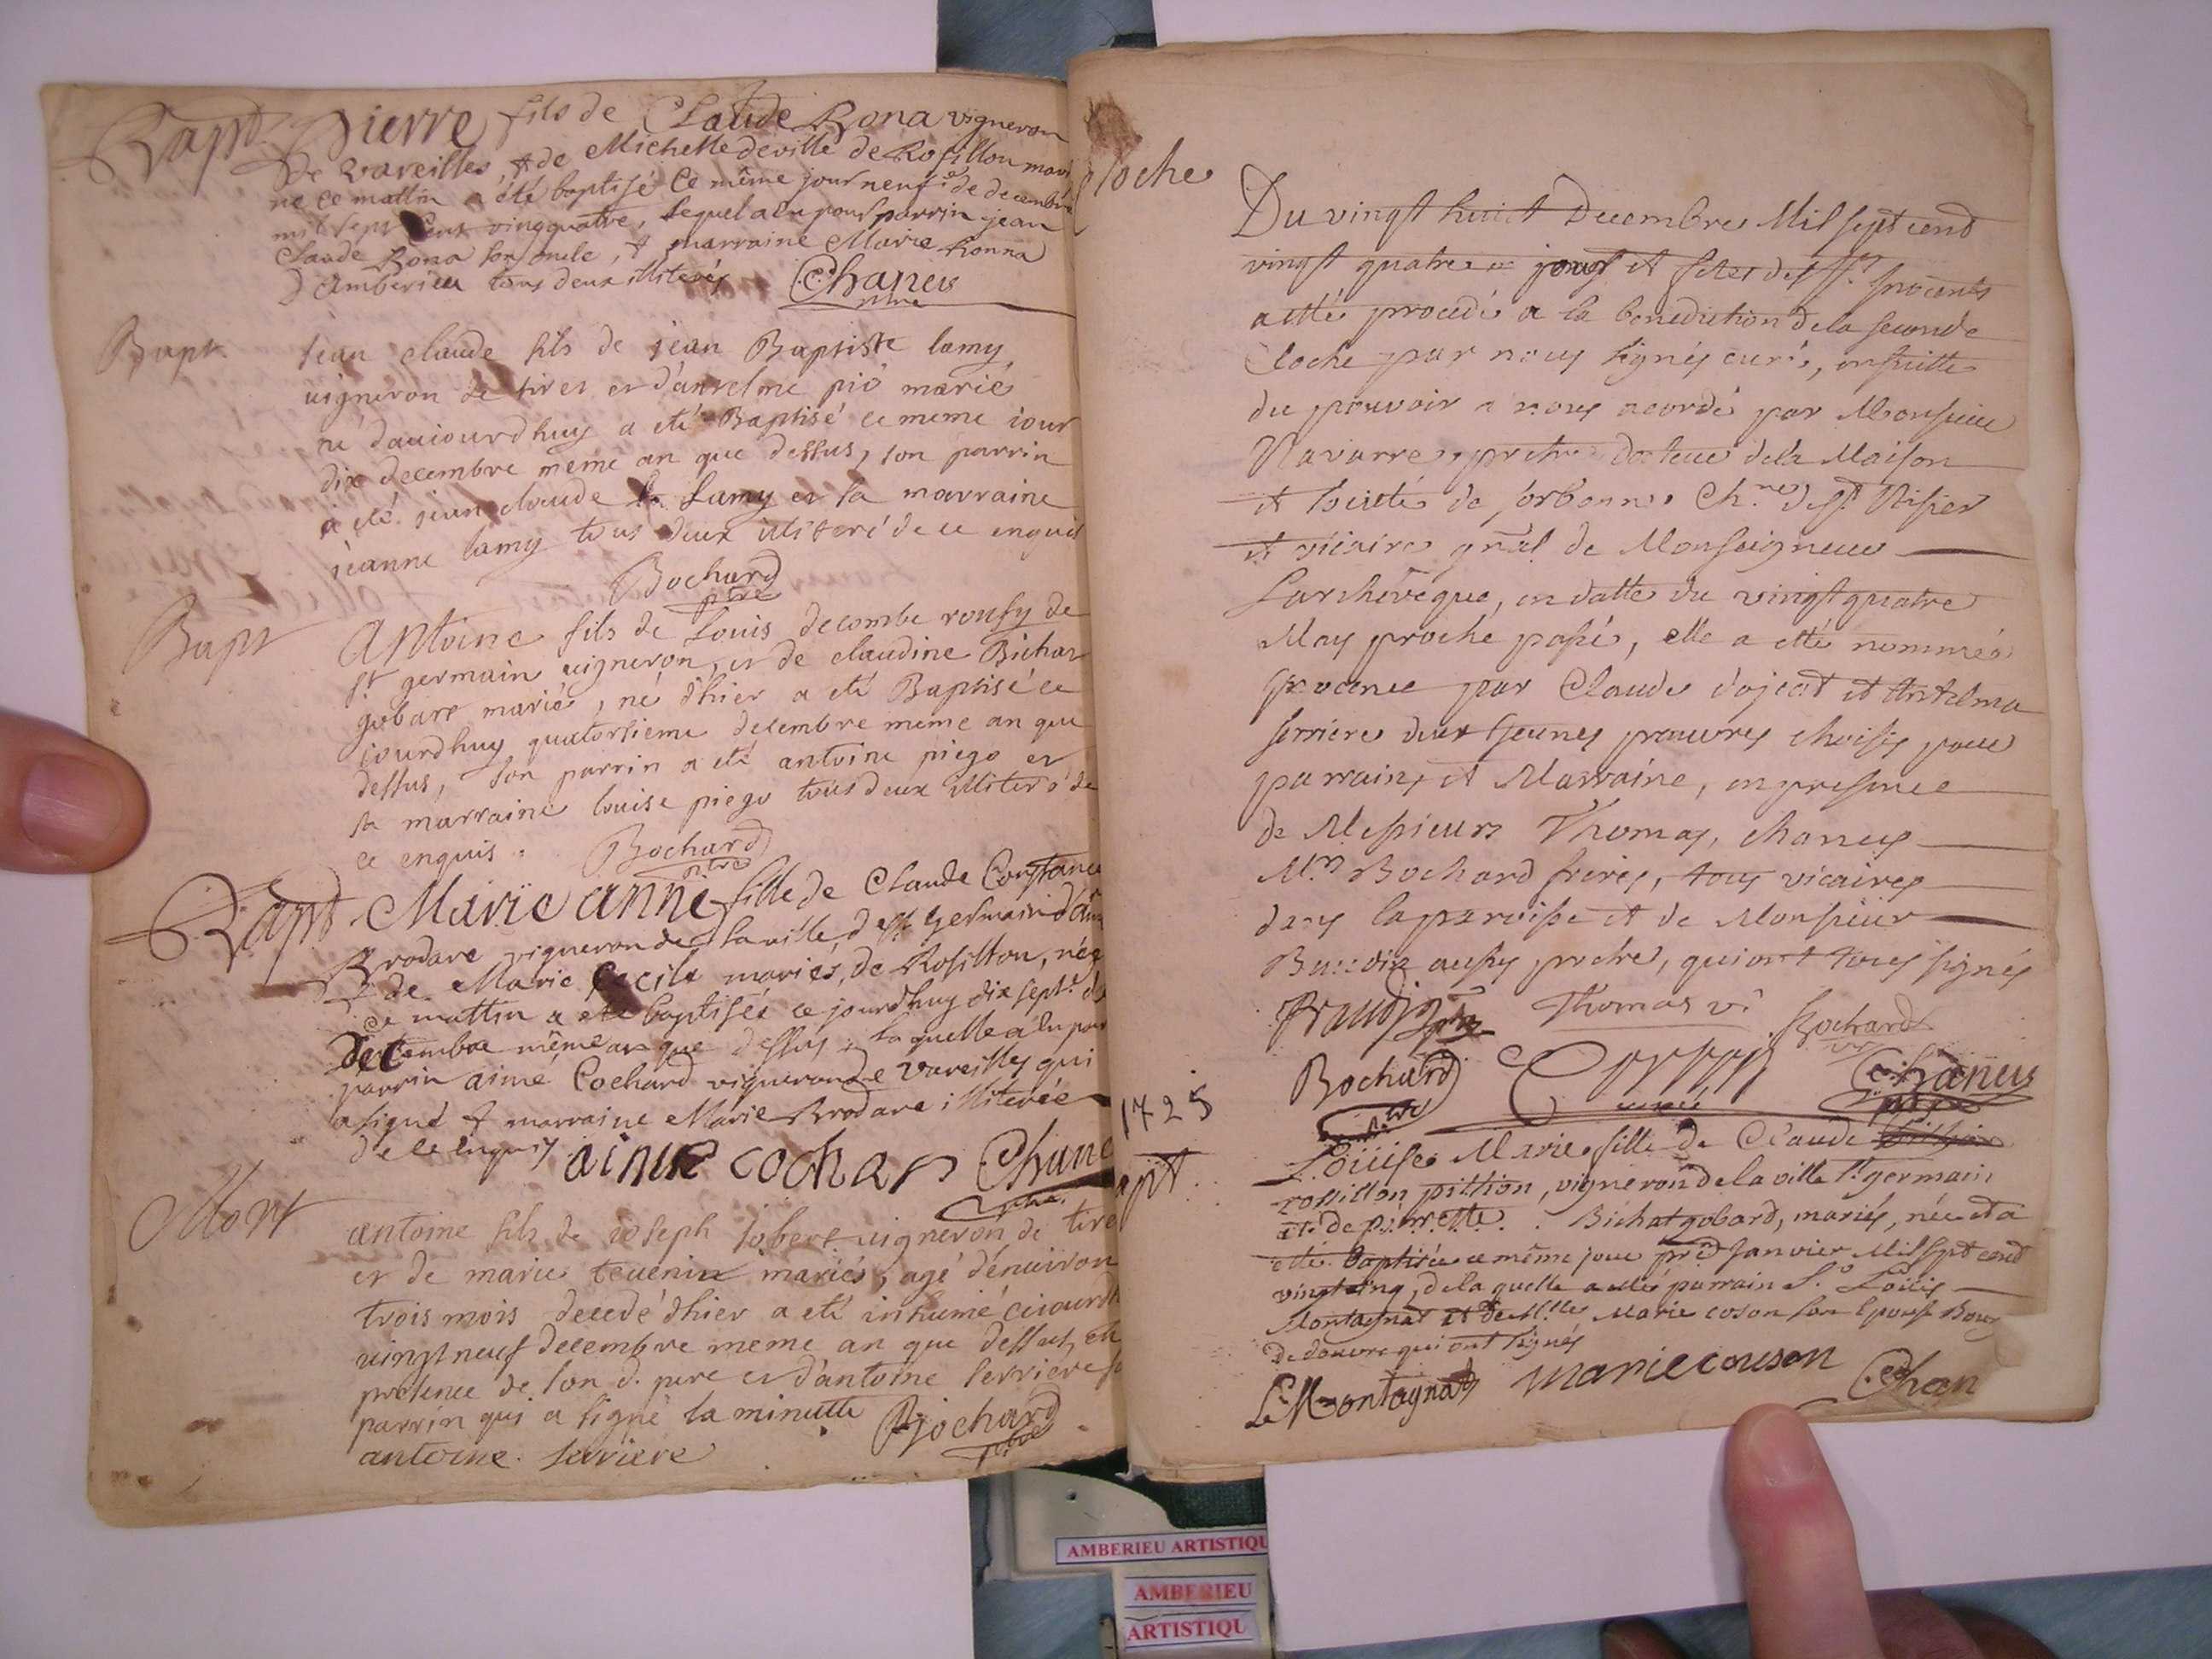 Bapt Pierre fils de Claude Rona vigneron
de Vareilles, & de Michelle deville de Rosillon mari
né ce mattin a été baptisé ce même jour neuf.e de decembre
mil sept cent vingquatre, lequel a eu pour parrin jean
Claude Rona son oncle, & marraine Marie Ronna
d'Amberieu tous deux illiterés Chaneis
ptre
Bapt. jean claude fils de jean Baptiste lamy
uigneron de tiret et d'anselme pió mariés
né d'auiourdhuy a eté Baptisé ce meme iour
dix decembre meme an que dessus, son parrin
a eté jean claude Lamy et sa marraine
jeanne lamy tous deux illiteré de ce enquis
Bochard
ptre
Bapt Antoine fils de Louis decombe ronsy de
st germain uigneron, et de claudine Bichat
gobart mariés, né d'hier a eté Baptisé ce
iourdhuy quatorsieme decembre meme an que
dessus, son parrin a eté antoine piego et
sa marraine louise piego tous deux illiteré de
ce enquis. Bochard
ptre
Bapt Marie anne fille de Claude Constance
Brodare vigneron de la ville, de st Germain d'Am
& de Marie cecile mariés, de Rosillon, née
ce mattin a eté baptisée ce jourdhuy dix sept.e de
Decembre même an que dessus, la quelle a eu pour
parrin aimé Cochard vigneron de Vareilles qui
a signé & marraine Marie Brodare illiterée
de ce enquis aime cochar Chane
ptre.
Mort antoine fils de ioseph Jobert uigneron de tire
et de marie teuenin mariés, agé d'enuiron
trois mois decedé d'hier a eté inhumé ciourdh
uingt neuf decembre meme an que dessus, en
presence de son d. pere et d'antoine serriere so
parrin qui a signé la minutte Bochard
antoine. serriere ptre
Cloche
Du vingt huict Decembre Mil sept cend
vingt quatre jour et fetes des sts jnocents
a etté procedé a la benediction de la seconde
Cloche par nous signés curé, ensuitte
du pouvoir a nous acordé par Monsieur
Navarre, pretre docteur de la Maison
et societé de sorbonne. Ch.ne de st Nisier
et vicaire gnãl de Monseigneur
Larchevêque, en datte du vingt quatre
May proche passé, elle a etté nommée
jnocence par Claude dojeat et Antelma
serriere deux jeunes pauvres choisis pour
parrain, et Marraine, en presence
de Messieurs Thomas, chaneis
Mrs Bochard freres, tous vicaires
dans la paroisse et de Monsieur
Baudin aussy pretre, qui ont tous signés
Baudin ptre Thomas vi Bochard
vic
Bochard Chaneis
vic curé ptre
1725
apt. Loüise Marie fille de Claude
rossillon pittion, vigneron de la ville st germain
et de pierrette. Bichat gobard, mariés, née et a
etté baptisée ce même jour prer Janvier Mil sept cend
vingt cinq, de la quelle a etté parrain Sr Loüis
Montagnat et de Mlle Marie coson son Epouse Bourg
de douvre qui ont signés
LsMontagnat marie couson Chan
AMBERIEU ARTISTIQU
AMBERIEU
ARTISTIQU